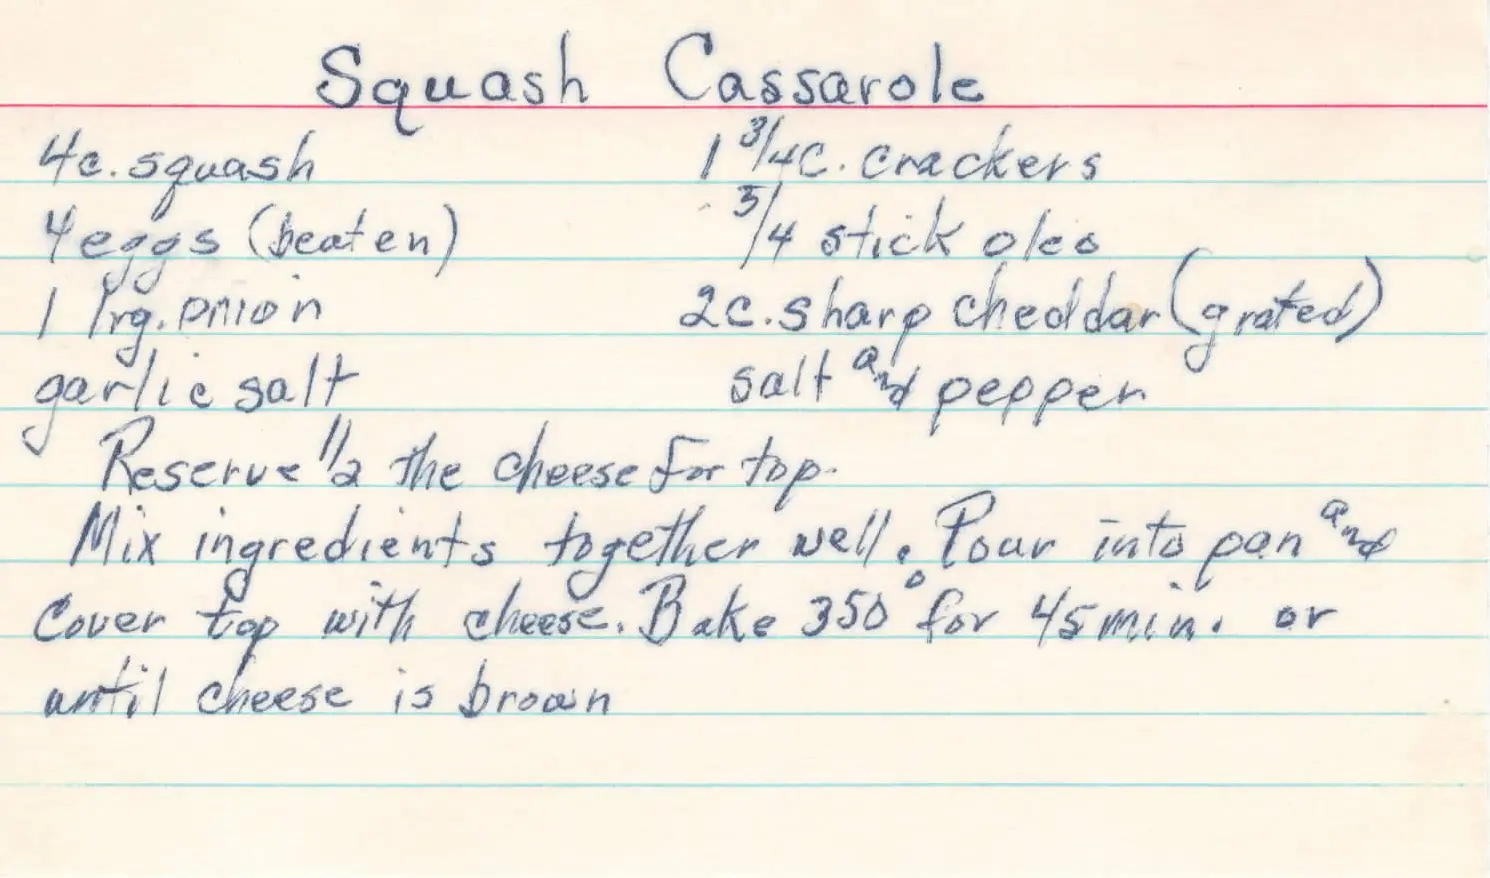 Squash Cassarole
4c. squash 1 3/4c. crackers
4 eggs (beaten) 3/4 stick oleo
1 lrg. onion 2c. sharp cheddar (grated)
garlic salt salt and pepper
Reserve 1/2 the cheese for top.
Mix ingredients together well. Pour into pan and
cover top with cheese. Bake 350° for 45 min. or
until cheese is brown